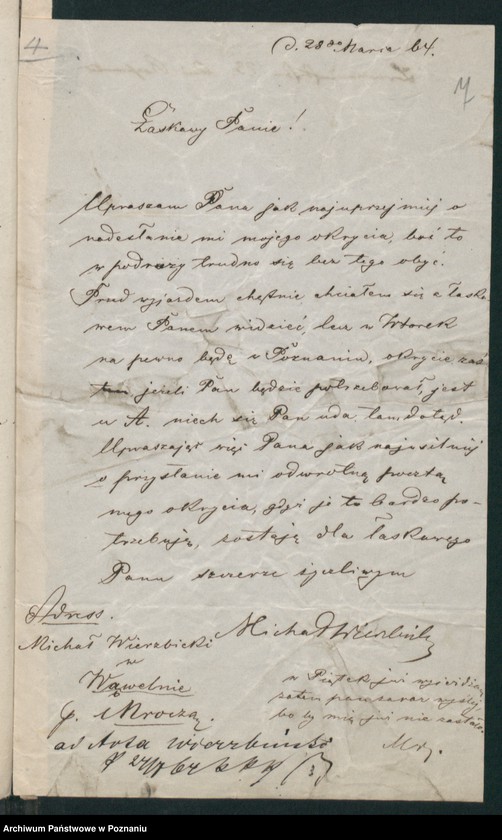 4
d. 28go Marca 64.
7
Łaskawy Panie!
Upraszam Pana jak najuprzejmiej o
nadesłanie mi mojego okrycia, boć to
w podróży trudno się bez tego obyć.
Przed wyjazdem chętnie chciałem się z łaska
wem Panem widzieć, lecz w Wtorek
na pewno będę w Poznaniu, okrycie zaś
jeżeli Pan będzie potrzebował, jest
u A. niech się Pan uda tam dotąd.
Upraszając więc Pana jak najusilniej
o przysłanie mi odwrotną pocztą
mego okrycia, gdyż je to bardzo po-
trzebuję, zostaję dla łaskawego
Pana szczerze życzliwym
Michał Wierzbicki
Adress.
Michał Wierzbicki
w
Wąwelnie
p. Mroczą.
w Piątek już wyjeżdżam,
zatem zaraz wyślij,
bo by mię już nie zastało.
ad Acta Wierzbiński
Archiwum Państwowe w Poznaniu